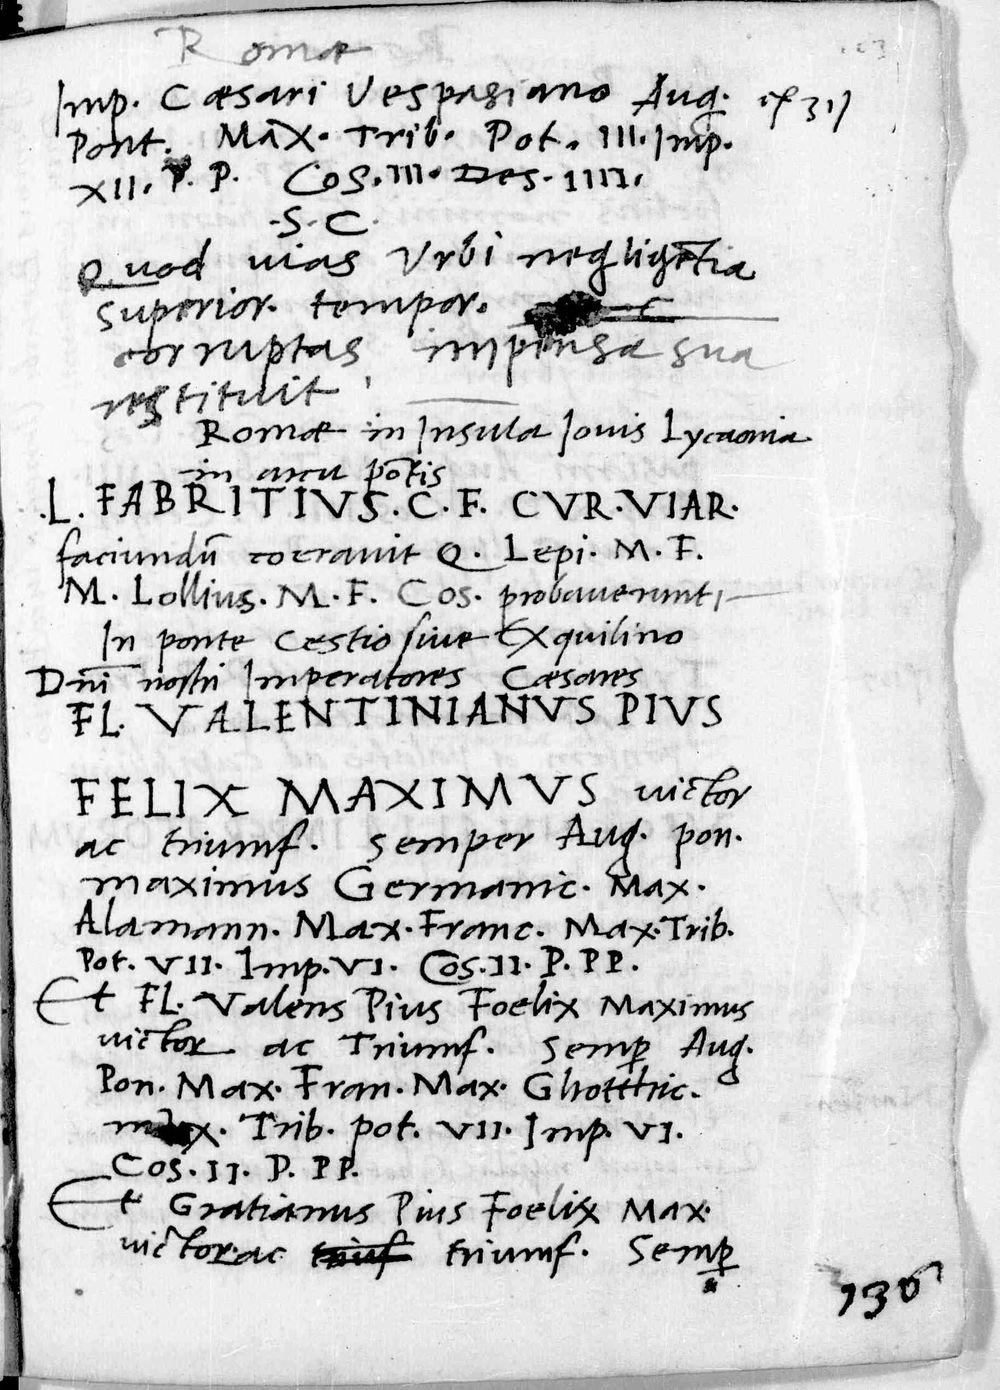 Romæ
Imp. Cæsari Vespasiano Aug.
Pont. Max. Trib. Pot. III. Imp.
XII. P. P. Cos. III. Des. IIII.
·S· C·
Quod uias Vrbi negligētia
superior. tempor.
corruptas impensa sua
restituit
Romæ in Insula Iouis Lycaonia
in arcu pōtis
.L. FABRITIVS. C. F. CVR. VIAR.
faciundū coerauit Q. Lepi. M. F.
M. Lollius. M. F. Cos. probauerunt,
In ponte Cestio siue Exquilino
Dn̄i nostri Imperatores Cæsares
FL. VALENTINIANVS PIVS
FELIX MAXIMVS uictor
ac triumf. semper Aug. pon.
maximus Germanic. Max.
Alamann. Max. Franc. Max. Trib.
Pot. VII. Imp. VI. Cos. II. P. PP.
Et FL. Valens Pius Foelix Maximus
uictor ac Triumf. Semp̱ Aug.
Pon. Max. Fran. Max. Ghotthic.
max. Trib. pot. VII. Imp. VI.
Cos. II. P. PP.
Et Gratianus Pius Foelix Max.
uictor. ac triumf. Semp̱
136